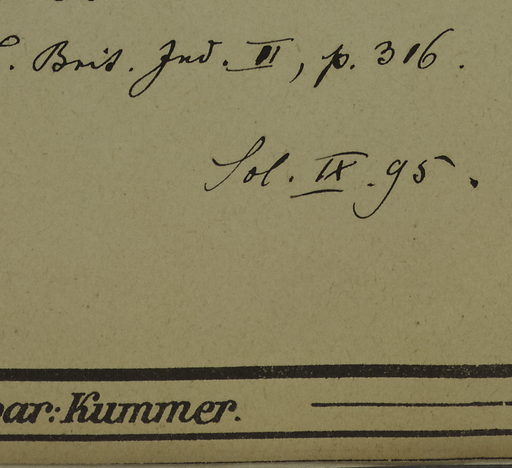 . Brit. Ind. II, p. 316.
Sol. IX. 95.
par: Kummer.